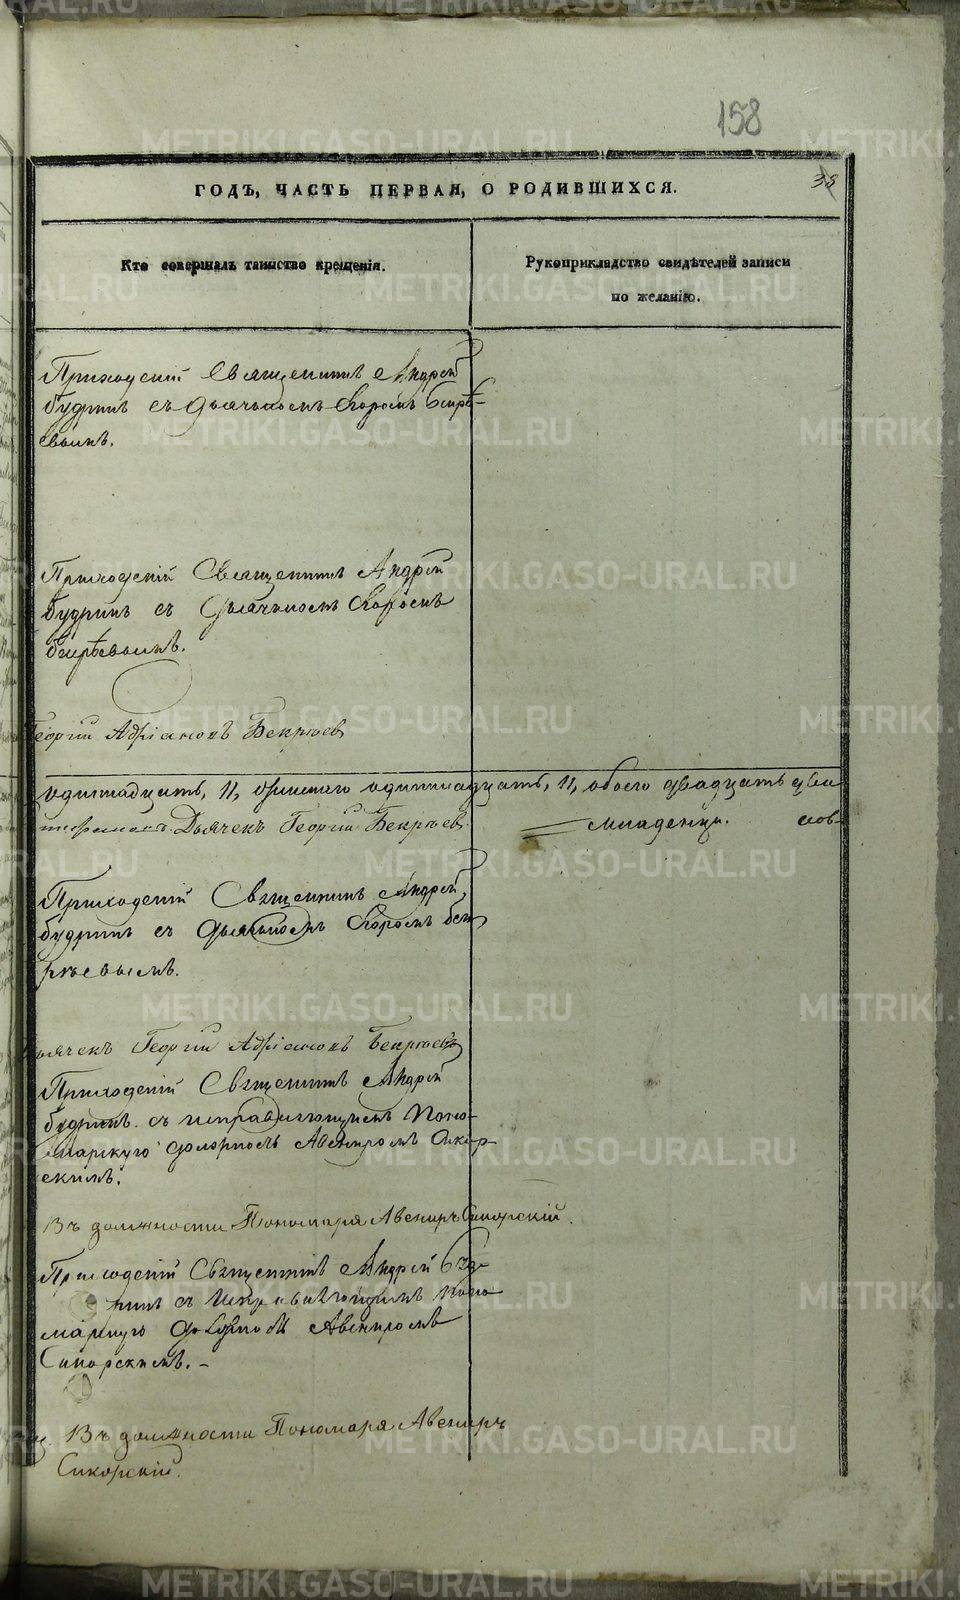 158
ГОДЪ, ЧАСТЬ ПЕРВАЯ, О РОДИВШИХСЯ.
38
Кто совершалъ таинство крещенія.
Рукоприкладство свидѣтелей записи
по желанію.
Приходскій Священникъ Андрей
Будринъ съ Дьячькомъ
Приходскій Священникъ Андрей
Будринъ съ Дьячькомъ
Георгій Адріановъ Бекрѣев
одинадцать, 11, одиннадцать, 11, обоего двадцать два
Дьячекъ Георгій Бекрѣев. младенца.
Приходскій Священникъ Андрей
Будринъ съ Дьячькомъ
Дьячекъ Георгій Адріановъ Бекрѣевъ
Приходскій Священникъ Андрей
Будринъ съ исправляющимъ Поно-
марскую должность Авениромъ Сикор-
скимъ.
Въ должности Пономаря Авениръ Сикорскій.
Приходскій Священникъ Андрей Буд-
ринъ съ Исправляющимъ Поно-
марскую должность Авениромъ
Сикорскимъ.
Въ должности Пономаря Авениръ
Сикорскій.
METRIKI.GASO-URAL.RU